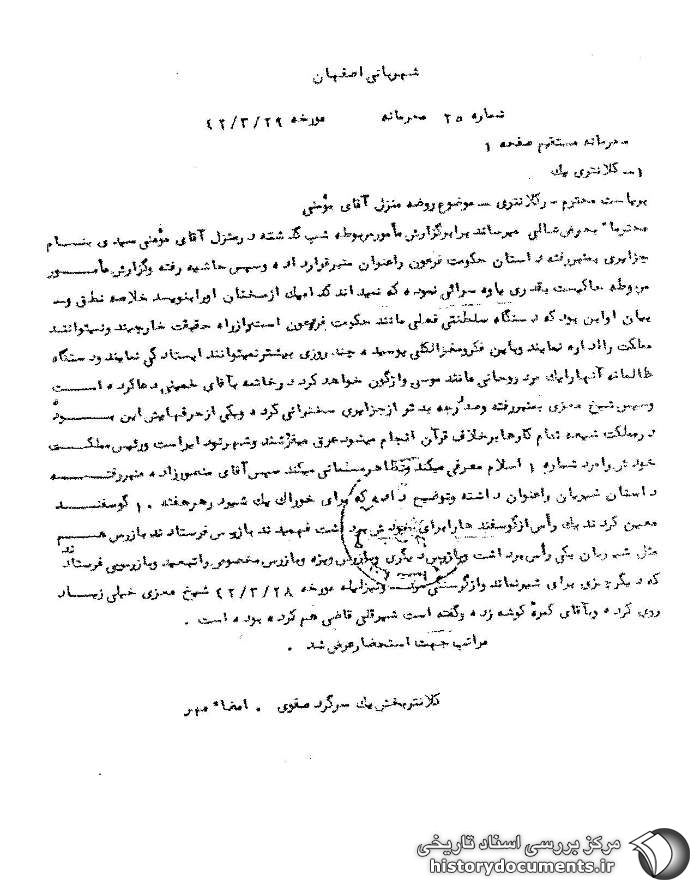 شهربانی اصفهان
شماره ۲۵ محرمانه مورخه ۴۲/۳/۲۹
محرمانه مستقیم صفحه ۱
۱ـ کلانتری یک
ریاست محترم کلانتری ــ موضوع روضه منزل آقای مؤمنی
محترما" بعرض عالی میرساند برابر گزارش مأمور مربوطه شب گذشته در منزل آقای مؤمنی سیدی بنام
جزایری بمنبر رفته داستان حکومت فرعون را عنوان منبر قرار داده و سپس حاشیه رفته و گزارش مأمور
مربوطه حاکیست بقدری یاوه سرائی نموده که نمیداند کدامیک از سخنان او را بنویسد خلاصه نطق و
بیان او این بود که دستگاه سلطنتی فعلی مانند حکومت فرعون است و از راه حقیقت خارجند و نمیتوانند
مملکت را اداره نمایند و باین فکر و مغز الکلی پوسیده چند روزی بیشتر نمیتوانند ایستادگی نمایند و دستگاه
ظالمانه آنها را یک مرد روحانی مانند موسی واژگون خواهد کرد در خاتمه بآقای خمینی دعا کرده است
و سپس شیخ معزی بمنبر رفته و صد درجه بدتر از جزایری سخنرانی کرده و یکی از حرفهایش این بوده
در مملکت شیعه تمام کارها بر خلاف قرآن انجام میشود عرق میفروشند و شهر نو دایر است و رئیس مملکت
خودش را مرد شماره ۱ اسلام معرفی میکند و تظاهر مسلمانی میکند سپس آقای منصورزاده منبر رفته
داستان شیربان را عنوان داشته و توضیح داده که برای خوراک یک شیر در هر هفته ۱۰ گوسفند
معین کردند یک رأس از گوسفندها را برای خودش برداشت فهمیدند بازرس فرستادند بازرس هم
مثل شیربان یکی رأس برداشت و بازرس دیگری و بازرس ویژه و بازرس مخصوص و اتمحمید و بازرسی فرستادند
که دیگر چیزی برای شیر نماند و از گرسنگی مرد و نیز مورخه ۴۲/۳/۲۸ شیخ معزی خیلی زیاد
روی کرده و بآقای کمره گوشه زده و گفته است شهر قلی قاضی هم کرده بوده است .
مراتب جهت استحضار عرض شد .
کلانتر بخش یک سرگرد صفوی . امضاء مهر
مرکز بررسی اسناد تاریخی
historydocuments.ir